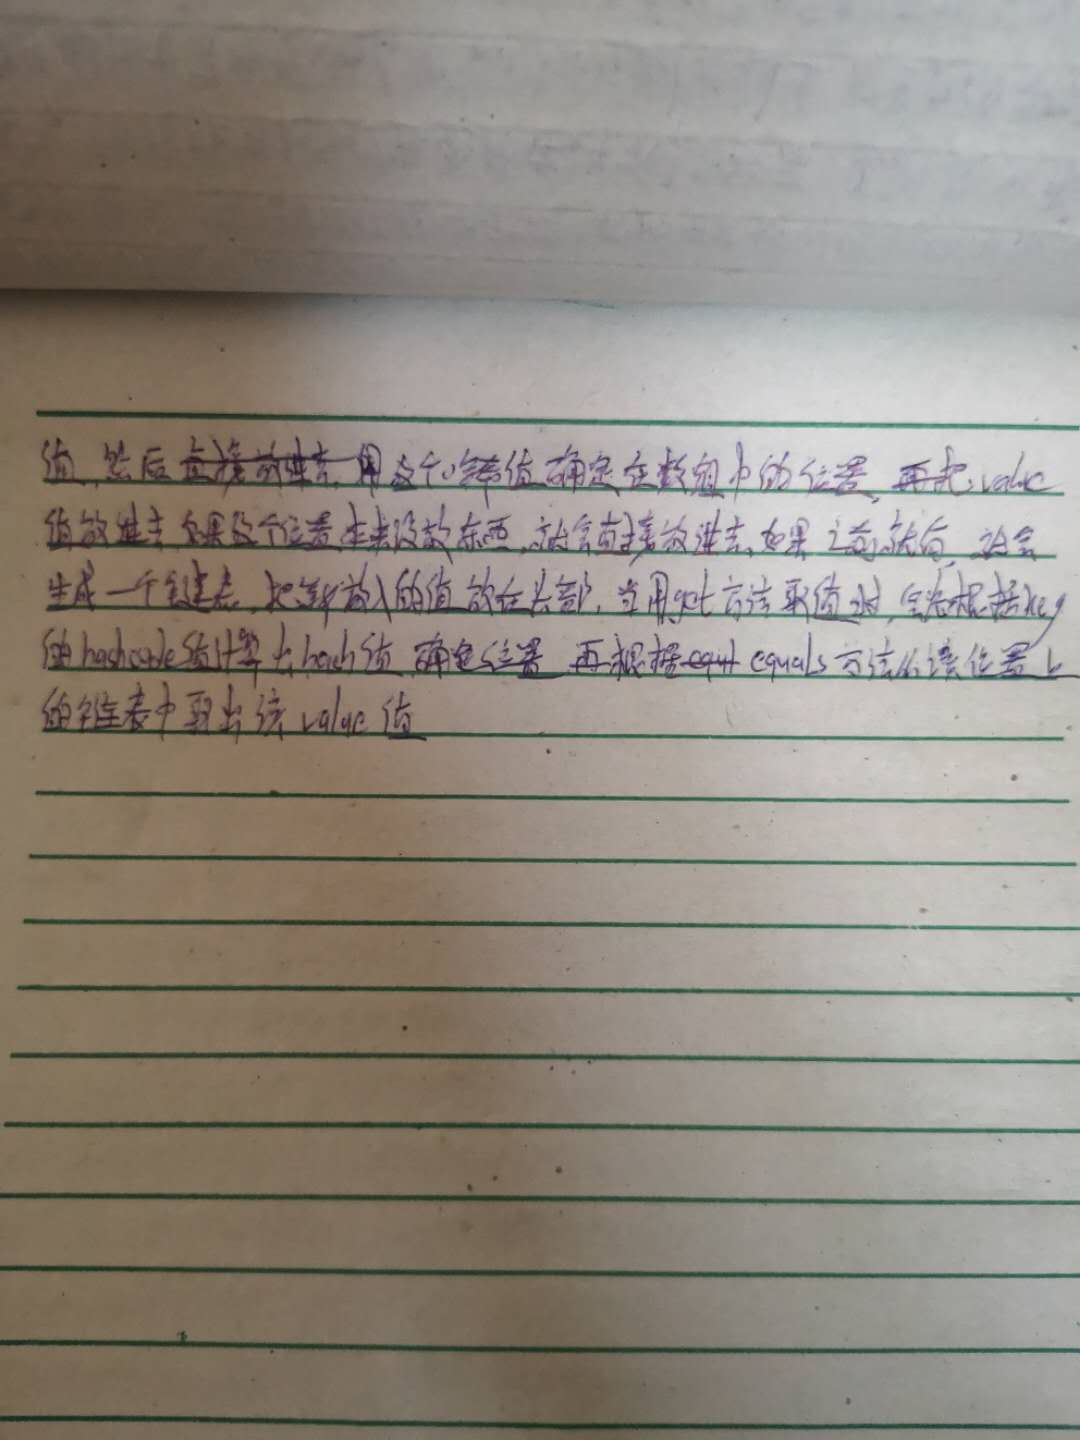 值,然后直接放进去,用这个哈希值确定在数组中的位置,再把value
值放进去,如果这个位置本来没放东西,就会直接放进去,如果之前就有,就会
生成一个链表,把新放入的值放在头部,当用get方法取值时,会先根据key
的hashcode值计算出hash值,确定位置,再根据equl equals方法从该位置上
的链表中取出该value值